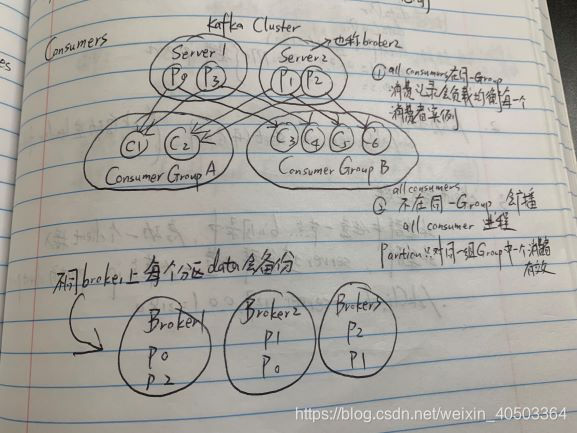 Consumers
Kafka Cluster
Server1
P0 P3
Server2
P1 P2
也称broker2
① all consumers在同一Group
消费记录会负载均衡每一个
消费者实例
C1 C2
Consumer Group A
C3 C4 C5 C6
Consumer Group B
② all consumers
不在同一Group 会广播
all consumer 进程
Partition只对同一组Group中一个消费
有效
不同broker上每个分区data会备份
Broker1
P0
P2
Broker2
P1
P0
Broker3
P2
P1
https://blog.csdn.net/weixin_40503364